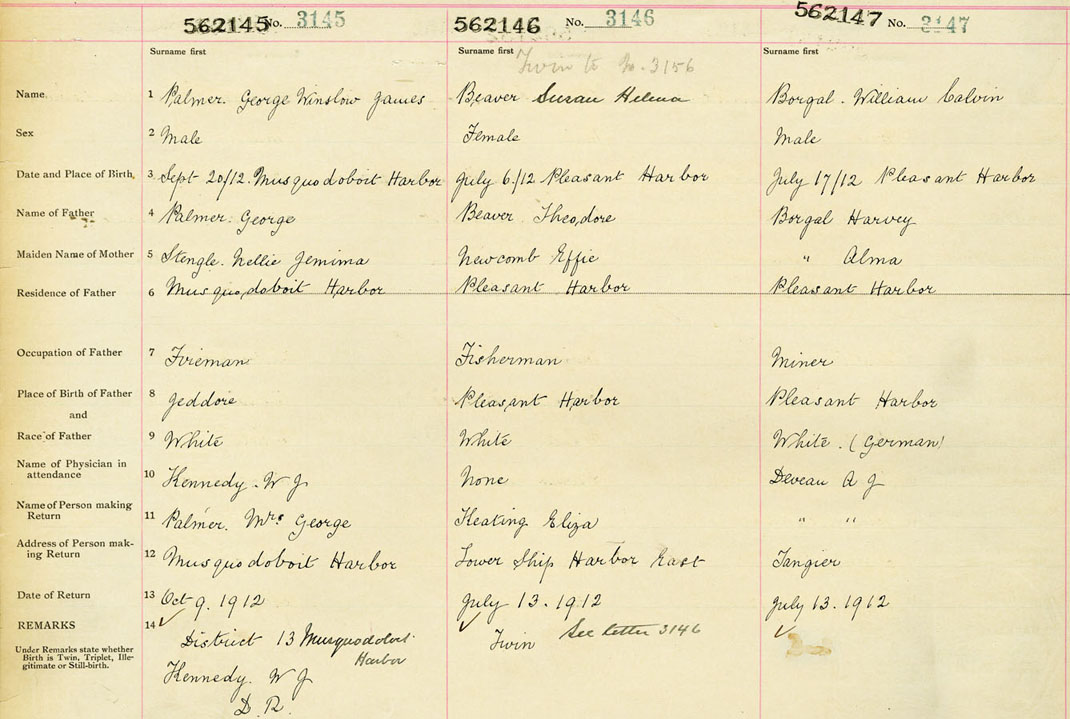 562145 No. 3145 562146 No. 3146 562147 No. 3147
Surname first Surname first Surname first
Twin to No. 3156
Name 1 Palmer. George Winslow James Beaver Susan Helena Borgal. William Calvin
Sex 2 Male Female Male
Date and Place of Birth, 3 Sept 20/12. Musquodoboit Harbor July 6/12 Pleasant Harbor July 17/12 Pleasant Harbor
Name of Father 4 Palmer. George Beaver Theodore Borgal Harvey
Maiden Name of Mother 5 Stengle. Nellie Jemima Newcomb Effie " Alma
Residence of Father 6 Musquodoboit Harbor Pleasant Harbor Pleasant Harbor
Occupation of Father 7 Fireman Fisherman Miner
Place of Birth of Father 8 Jeddore Pleasant Harbor Pleasant Harbor
and
Race of Father 9 White White White. (German)
Name of Physician in
attendance 10 Kennedy. W J None Deveau A J
Name of Person making
Return 11 Palmer. Mrs George Keating Eliza " "
Address of Person mak-
ing Return 12 Musquodoboit Harbor Lower Ship Harbor East Tangier
Date of Return 13 Oct 9. 1912 July 13. 1912 July 13. 1912
REMARKS 14 District 13 Musquodoboit Twin See Letter 3146
Harbor
Under Remarks state whether
Birth is Twin, Triplet, Ille-
gitimate or Still-birth.
Kennedy. W J
D. R.